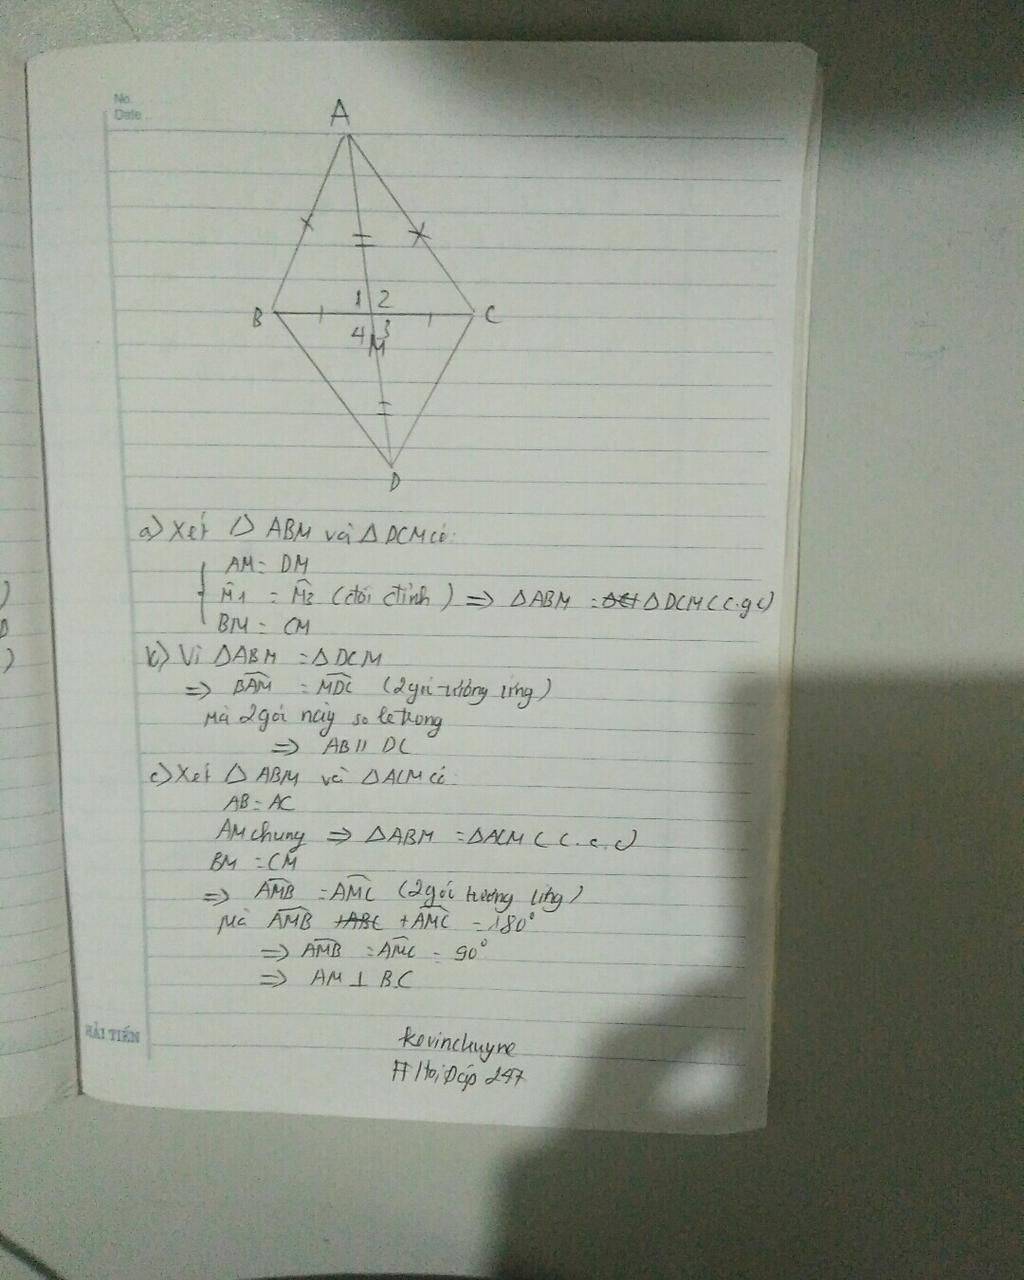 No.
Date
A
B
1 2
C
4 3
M
D
a) Xét △ ABM và △ DCM có:
AM = DM
M̂1 = M̂3 (đối đỉnh) => △ABM = △DCM (c.g.c)
BM = CM
b) Vì △ABM = △DCM
=> BAM = MDC (2 góc tương ứng)
Mà 2 góc này so le trong
=> AB // DC
c) Xét △ ABM và △ACM có:
AB = AC
AM chung => △ABM = △ACM (c.c.c)
BM = CM
=> AMB = AMC (2 góc tương ứng)
Mà AMB + AMC = 180°
=> AMB = AMC = 90°
=> AM ⊥ BC
HẢI TIẾN
kevinchuyne
# Hoi Đáp 247